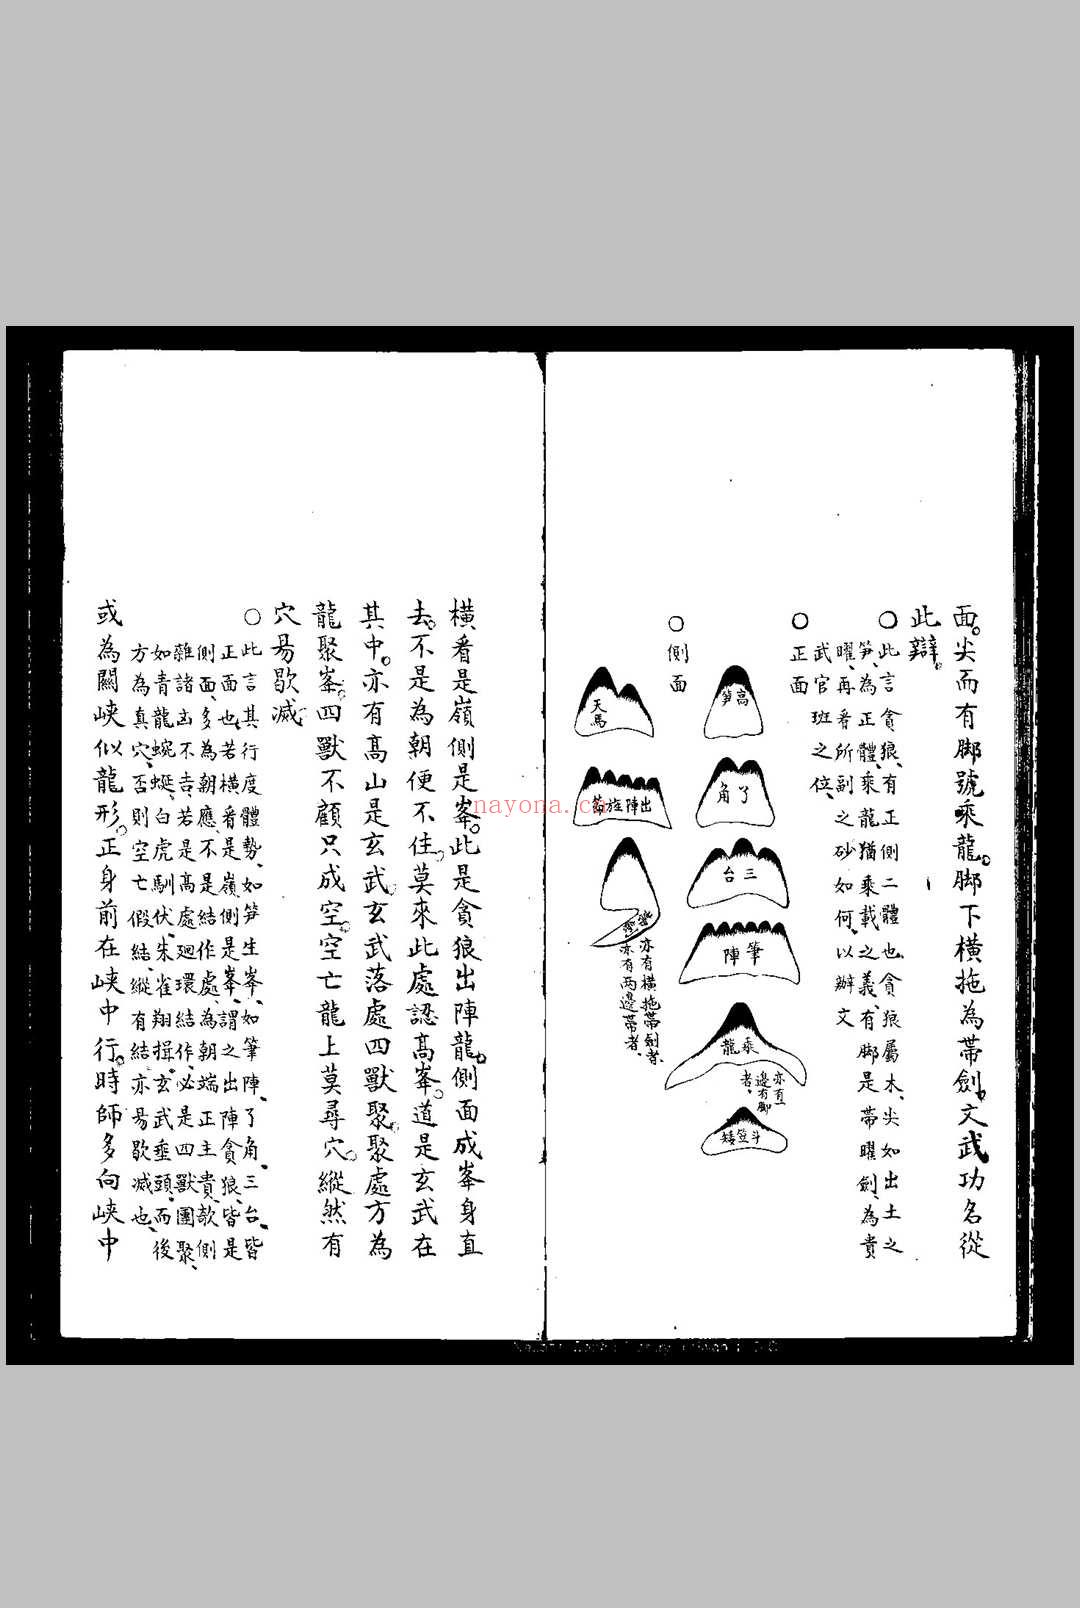 面。尖而有脚號乘龍。脚下橫拖為帶劍。文武功名從
此辯。
○此言貪狼、有正側二體也、貪狼屬木、尖如出土之
笋、為正體、乘龍猶乘載之義、有脚是帶曜劍、為貴
曜、再看所副之砂如何、以辦文
武官班之位、
○正面
高笋
了角
三台
筆陣
乘龍
亦有一
邊有脚
者、
○側面
天馬
出陣旌節
亦有橫拖帶劍者、
亦有两邊帶者、
橫看是嶺側是峯。此是貪狼出陣龍。側面成峯身直
去。不是為朝便不住。莫來此處認髙峯。道是玄武在
其中。亦有髙山是玄武。玄武落處四獸聚。聚處方為
龍聚峯。四獸不顧只成空。空亡龍上莫尋穴。縱然有
穴易歇滅
○此言其行度體勢、如笋生峯、如筆陣、了角、三台、皆
正面也、若橫看是嶺、側是峯、謂之出陣貪狼、皆是
側面、多為朝應、不是結作處、為朝端正主貴、欹側
雜諸凶不吉、若是高處廻環結作、必是四獸團聚、
如青龍蜿蜒、白虎馴伏、朱雀翔揖、玄武垂頭、而後
方為真穴、否則空亡假結、縱有結、亦易歇滅也、
或為關峡似龍形。正身前在峡中行。時師多向峡中
nayona.cn